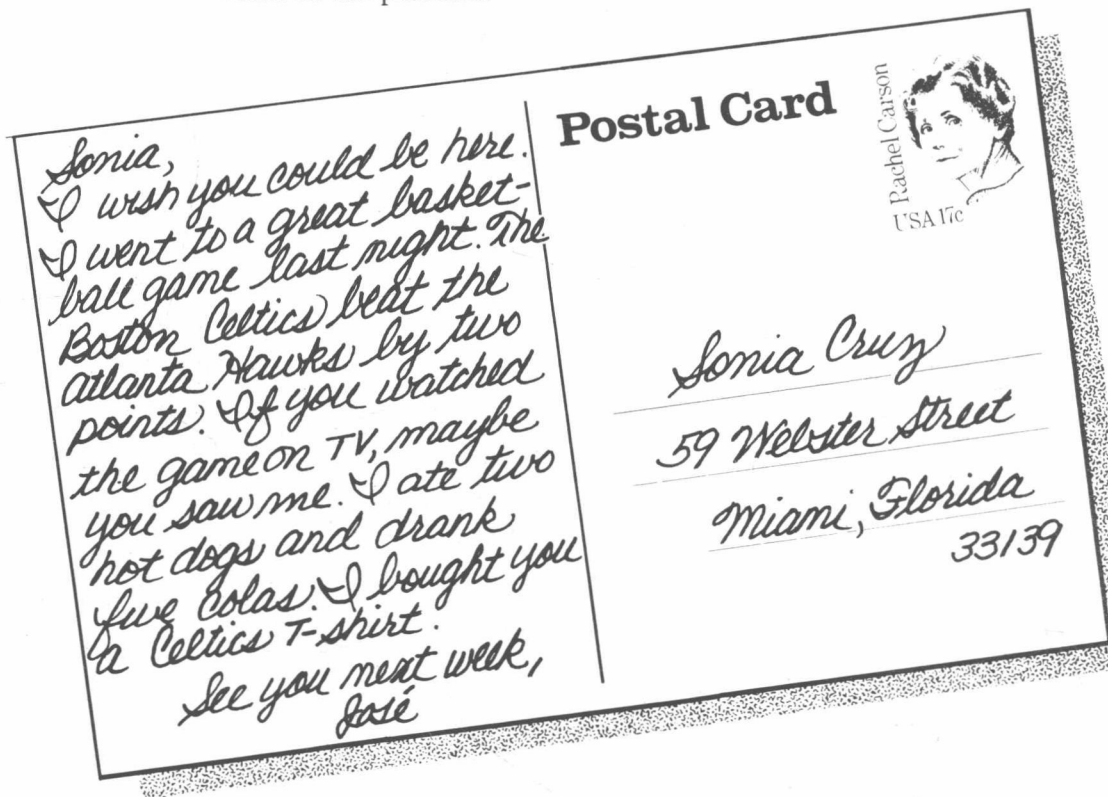 Sonia,
I wish you could be here.
I went to a great basket-
ball game last night. The
Boston Celtics beat the
Atlanta Hawks by two
points. If you watched
the game on TV, maybe
you saw me. I ate two
hot dogs and drank
five colas. I bought you
a Celtics T-shirt.
See you next week,
José
Postal Card
Rachel Carson
USA 17c
Sonia Cruz
59 Webster Street
Miami, Florida
33139